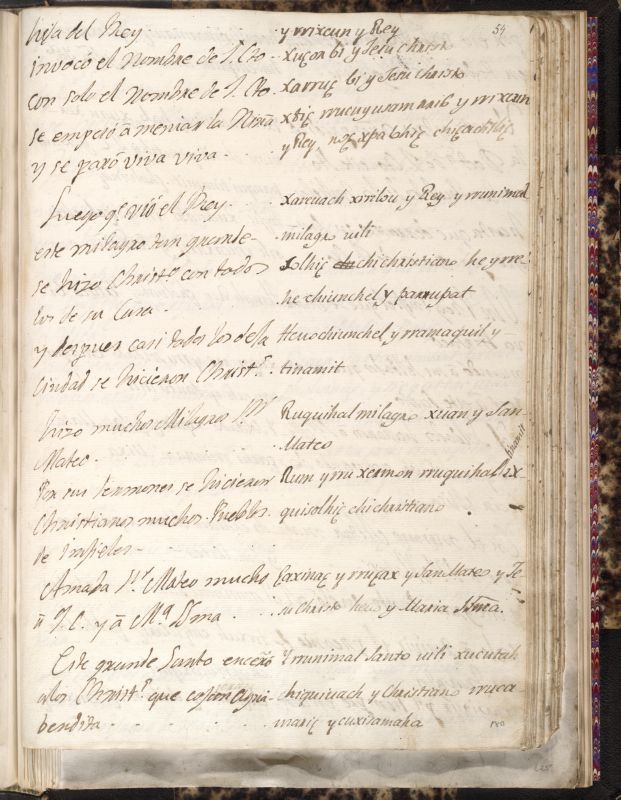 54
hija del Rey
y rrixcun y Rey
invocó el Nombre de J. Cto
xuçon bi y Jesu christo
con solo el Nombre de J. Cto
xarruç bi y Jesu christo
se empeçó a meniar la
y rrixcun
y se paró viva viva
y Rey
Luego q.e vió el Rey
xareuach xrrilou y Rey y rrunimal
este milagro tan grande
milagr uili
se hizo Christ.o con todos
chichristiano he y rre
los de su Casa
he chiunchel y parrupat
y despues casi todos los de la
Heuo chiunchel y rramaquil y
Ciudad se hicieron Christ.s
tinamit
hizo muchos Milagros S.n
Ruquihal milagro xuan y San
Mateo
Mateo
Por sus sermones se hicieron
Rum y rru xermon rruquihal
Christianos muchos Pueblos
quisolhiç chichristiano
de Infieles
Amaba S.n Mateo mucho
y rruçax y San Mateo y Je
á J. C. y á M.a
su Christo heuo y Maria
Este grande Santo enseñó
Y rrunimal Santo uili xucutah
a los Christ.s que cojan Agua
chiquiuach y Christiano rruca
bendita
mariç y cuxiramaha